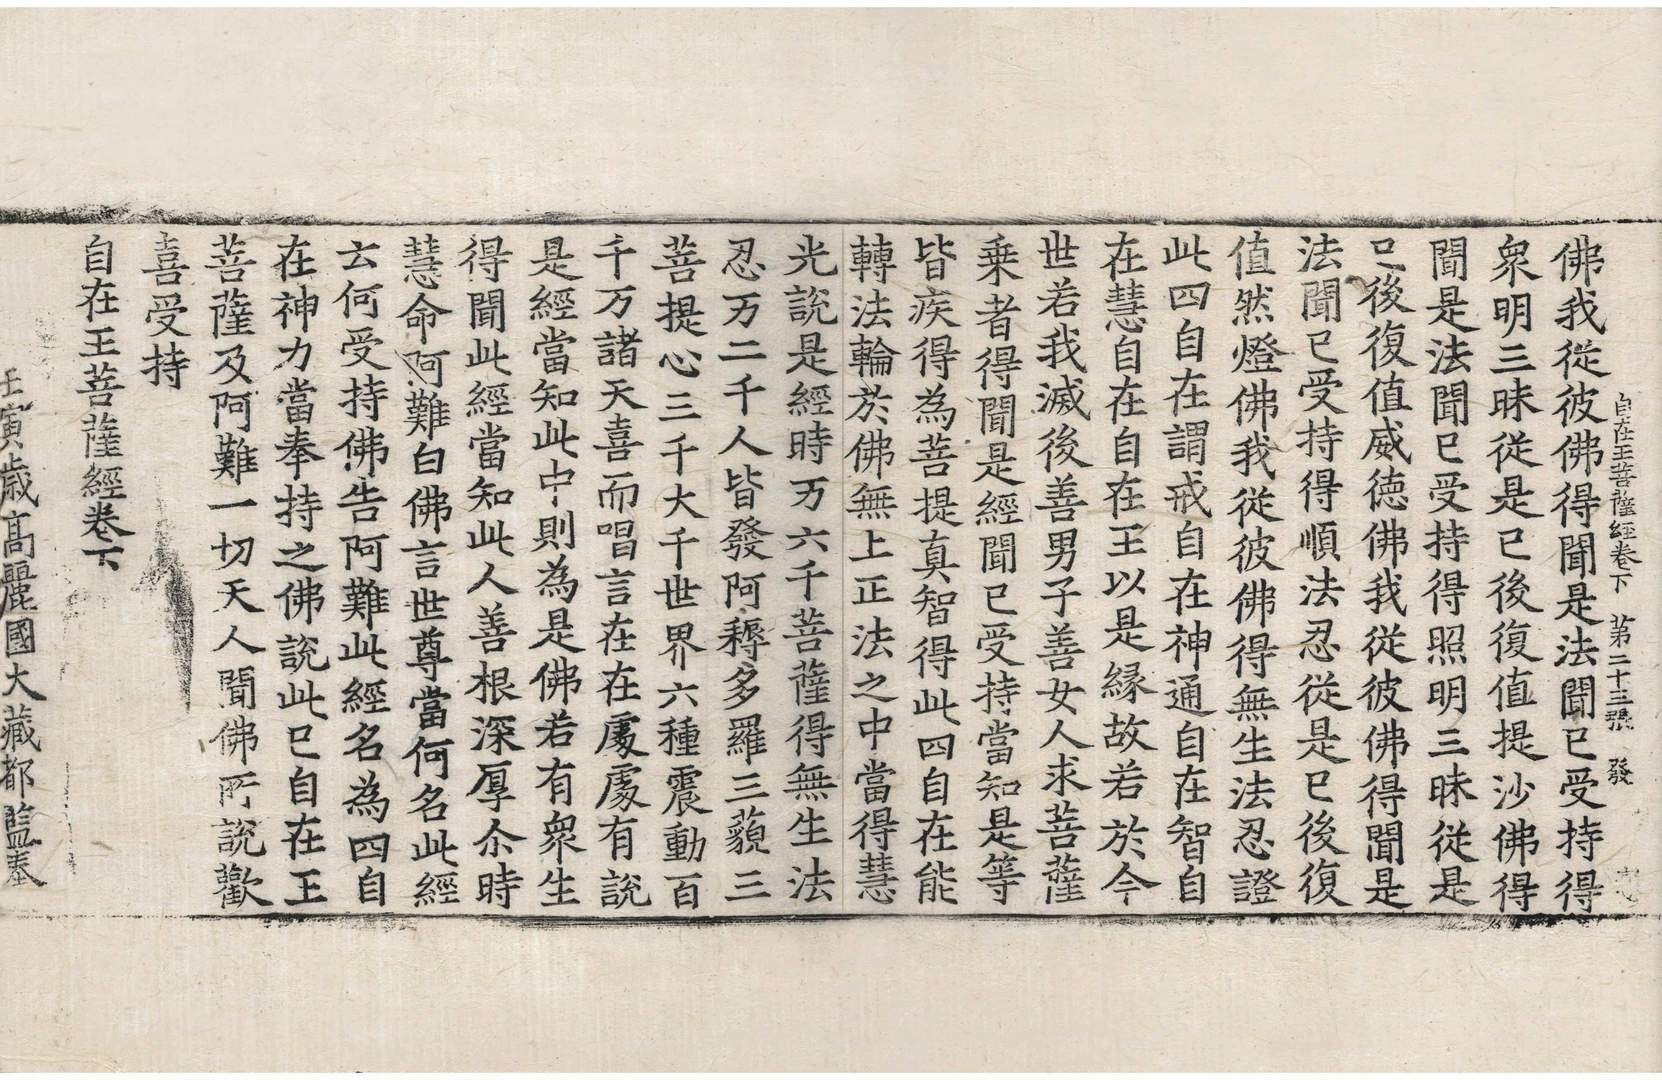 自在王菩薩經卷下　第二十三張　發
佛我從彼佛得聞是法聞已受持得
衆明三昧從是已後復值提沙佛得
聞是法聞已受持得照明三昧從是
已後復值威德佛我從彼佛得聞是
法聞已受持得順法忍從是已後復
值然燈佛我從彼佛得無生法忍證
此四自在謂戒自在神通自在智自
在慧自在自在王以是緣故若於今
世若我滅後善男子善女人求菩薩
乗者得聞是經聞已受持當知是等
皆疾得為菩提真智得此四自在能
轉法輪於佛無上正法之中當得慧
光說是經時万六千菩薩得無生法
忍万二千人皆發阿耨多羅三藐三
菩提心三千大千世界六種震動百
千万諸天喜而唱言在在處處有說
是經當知此中則為是佛若有衆生
得聞此經當知此人善根深厚尒時
慧命阿難白佛言世尊當何名此經
云何受持佛告阿難此經名為四自
在神力當奉持之佛說此已自在王
菩薩及阿難一切天人聞佛所說歡
喜受持
自在王菩薩經卷下
壬寅歲高麗國大藏都監奉